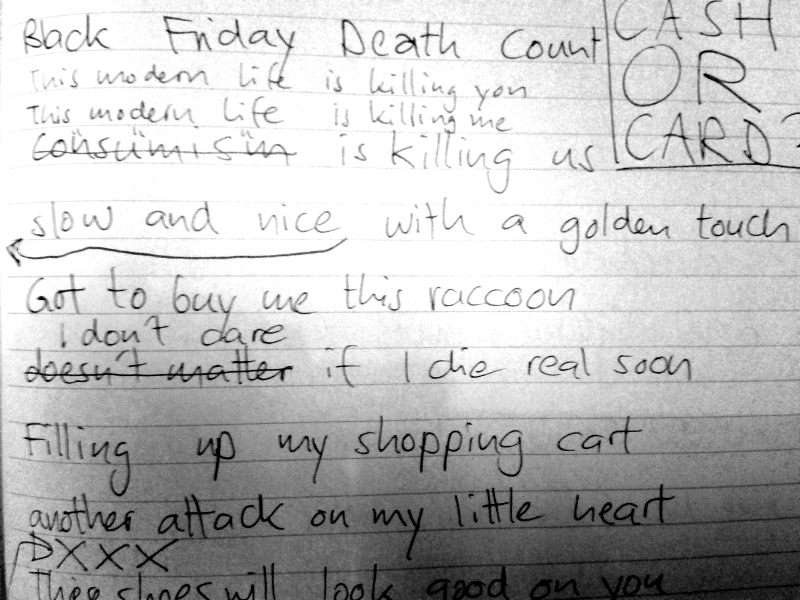 Black Friday Death Count
CASH
OR
CARD?
This modern life is killing you
This modern life is killing me
Consumism is killing us
slow and nice with a golden touch
Got to buy me this raccoon
I don't care
doesn't matter if I die real soon
Filling up my shopping cart
another attack on my little heart
XXX
shoes will look good on you